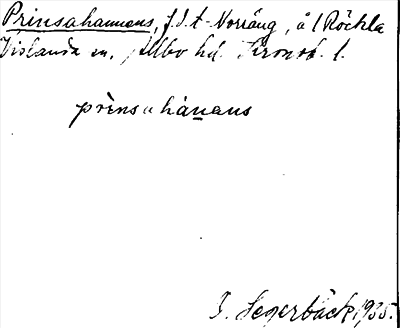 Prinsahannens, f.d.t. Norräng, å 1 Röckla
Vislanda sn, Allbo hd. Kronob. l.
prinsahànans
I. Segerbäck 1935.